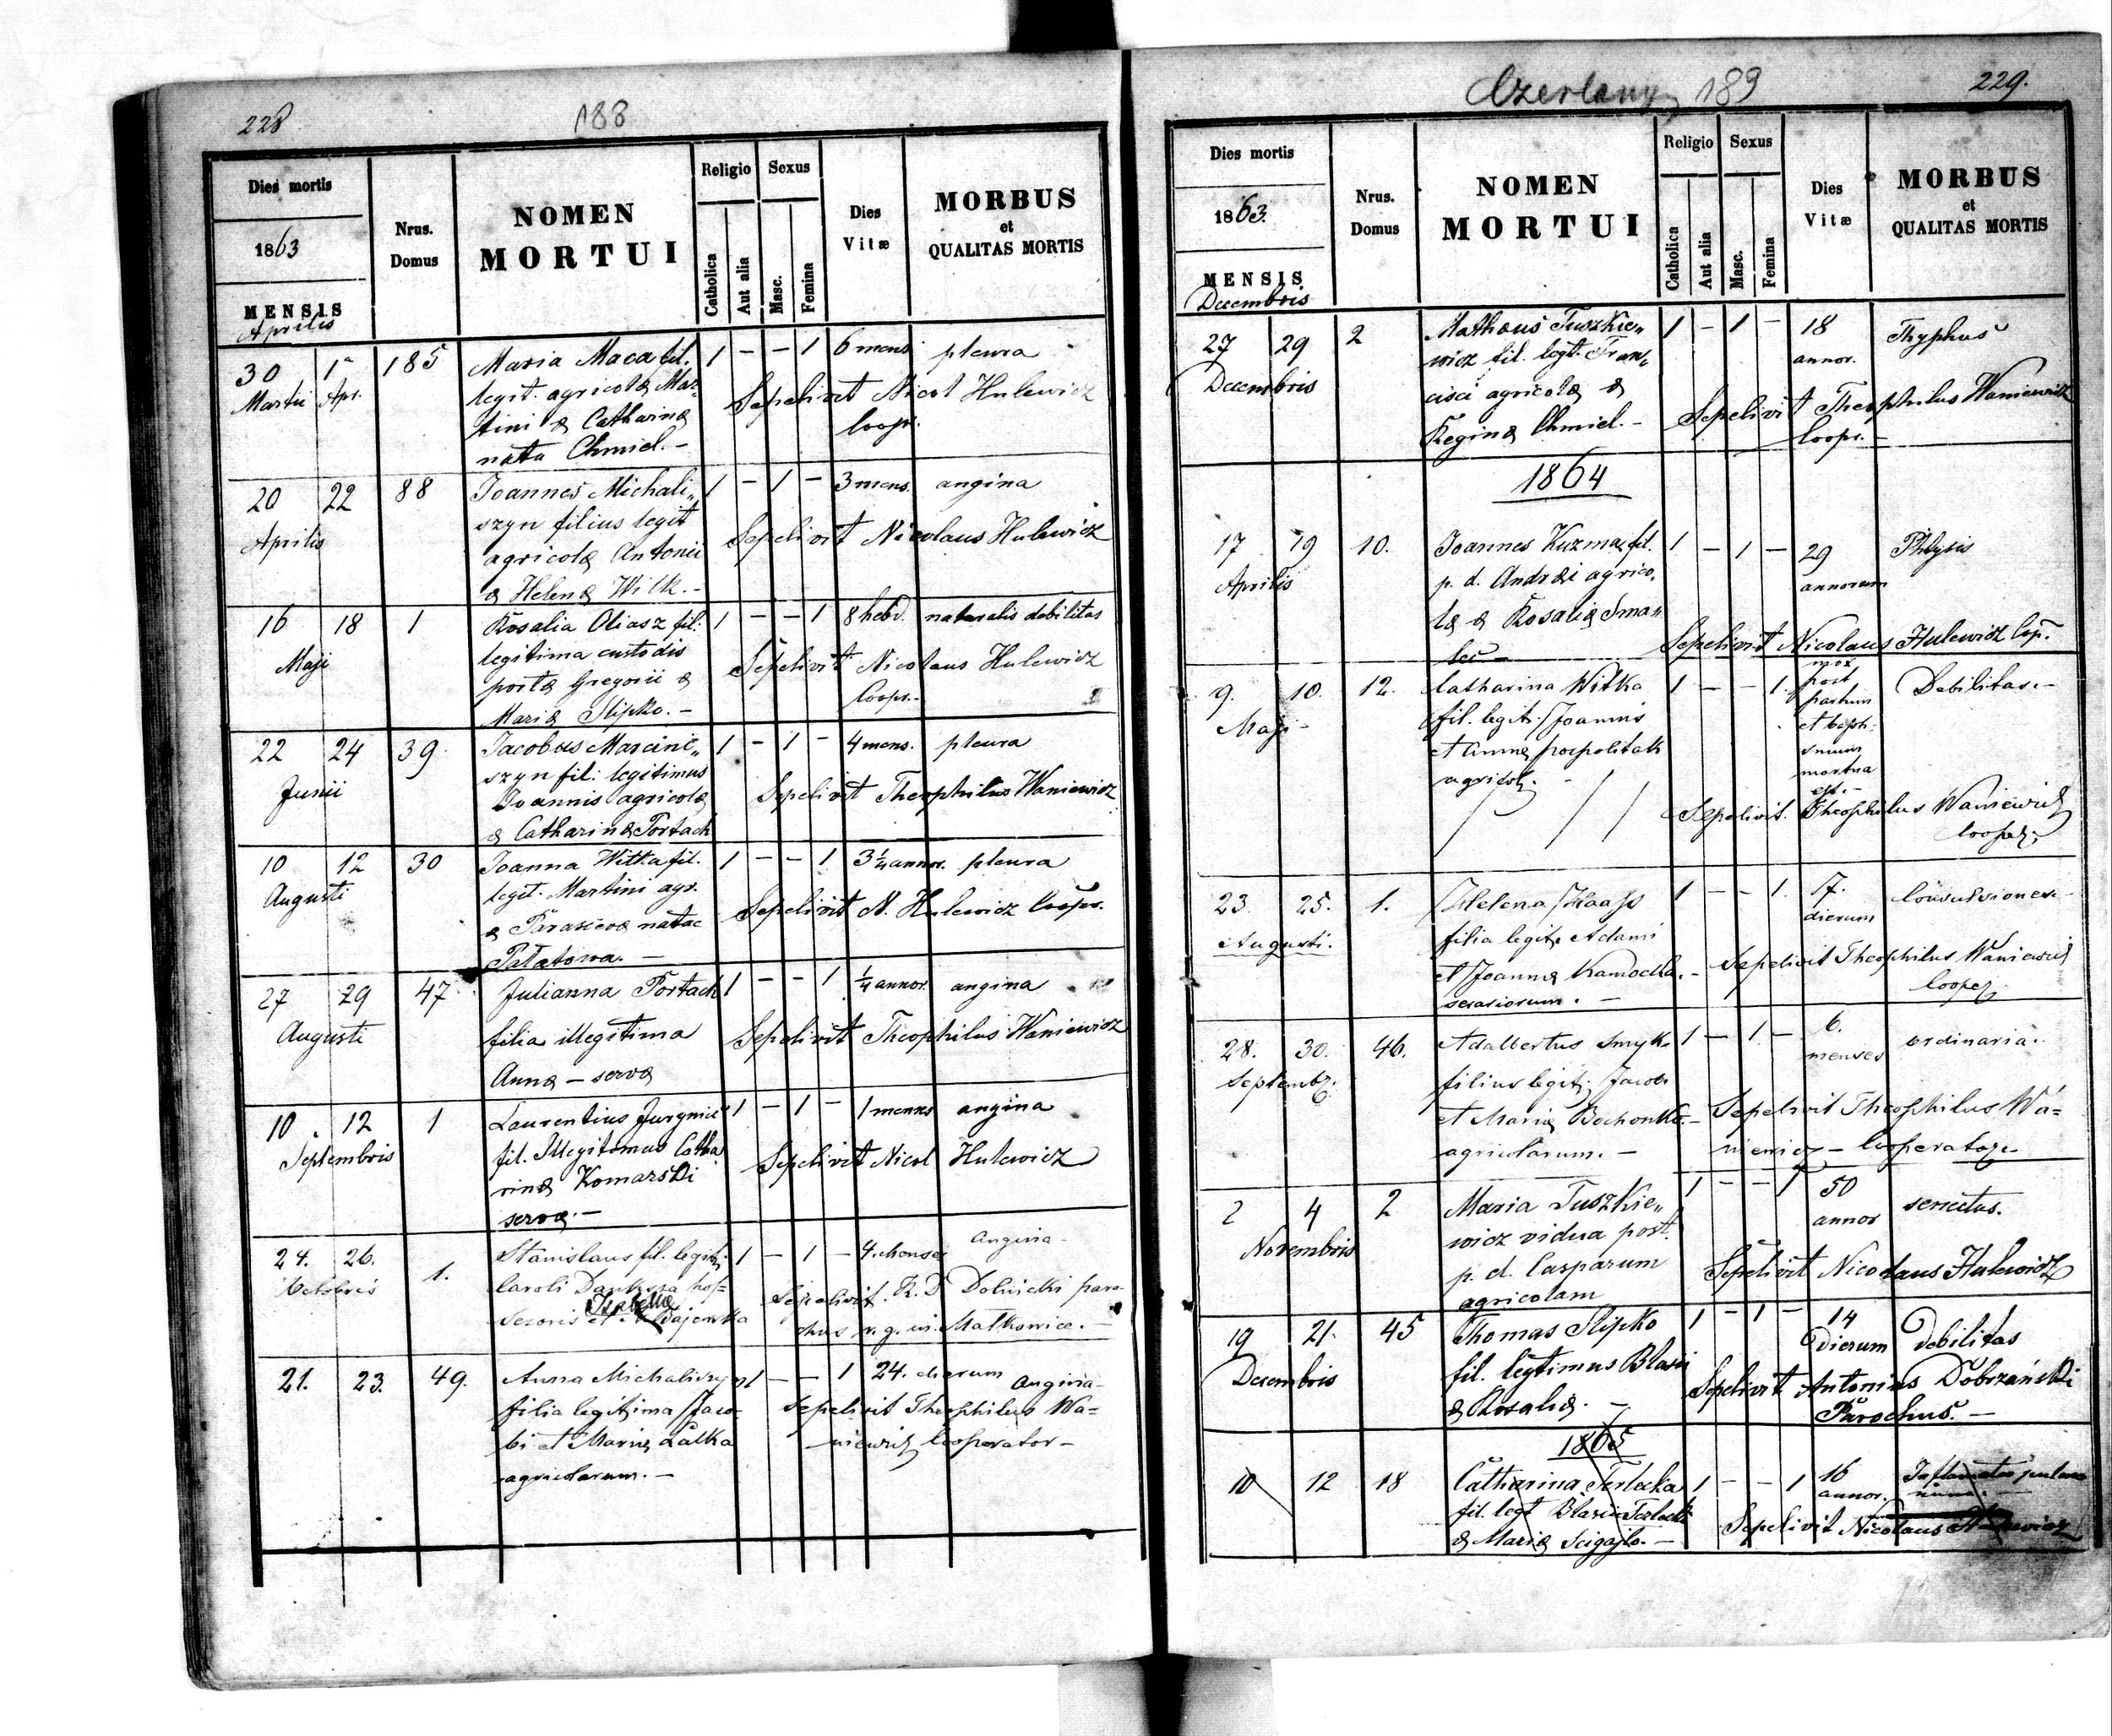 228
188
Dies mortis
1863
MENSIS
Aprilis
Nrus.
Domus
NOMEN
MORTUI
Religio
Catholica
Aut alia
Sexus
Masc.
Femina
Dies
Vitæ
MORBUS
et
QUALITAS MORTIS
30 1 185 Maria Maca fil. 1 – – 1 6 mens. pleura
Martii Apr. legit. agricolæ Mar-
tini & Catharinæ
nata Chmiel. –
Sepelivit Nicol Hulewicz
Coopr.
20 22 88 Joannes Michali„ 1 – 1 – 3 mens. angina
Aprilis szyn filius legit
agricolæ Antonii
& Helenæ Wilk. –
Sepelivit Nicolaus Hulewicz
16 18 1 Rosalia Oliasz fil: 1 – – 1 8 hebd. naturalis debilitas
Maji legitima custodis
portæ Gregorii &
Mariæ Slipko. –
Sepelivit Nicolaus Hulewicz
Coopr. –
22 24 39 Jacobus Marcini„ 1 – 1 – 4 mens. pleura
Junii szyn fil: legitimus
Joannis agricolæ
& Catharinæ Portach
Sepelivit Theophilus Waniewicz
10 12 30 Joanna Witka fil. 1 – – 1 3 1/4 annor. pleura
Augusti legit. Martini agr.
& Parascevæ natae
Patatowa. –
Sepelivit N. Hulewicz Coopr.
27 29 47 Julianna Portach 1 – – 1 1/4 annor. angina
Augusti filia illegitima
Annæ – servæ
Sepelivit Theophilus Waniewicz
10 12 1 Laurentius 1 – 1 – 1 menses angina
Septembris fil. Illegitimus Catha
rinæ Komarski
servæ. –
Sepelivit Nicol Hulewicz
24. 26. 1. Stanislaus fil. legit. 1 – 1 – 4. menses angina –
Octobris Caroli
et
Sepelivit R. D Dolnicki paro
chus r. g. in Malkowice. –
21. 23. 49. Anna Michaliszyn 1 – – 1 24. dierum Angina –
filia legitima Jaco-
bi et Mariæ Lalka
agricolarum. –
Sepelivit Theophilus Wa=
niewicz Cooperator –
Czerlany 189
229.
Dies mortis
1863.
MENSIS
Decembris
Nrus.
Domus
NOMEN
MORTUI
Religio
Catholica
Aut alia
Sexus
Masc.
Femina
Dies
Vitæ
MORBUS
et
QUALITAS MORTIS
27 29 2 Matheus Tuszkie„ 1 – 1 – 18 annor. Thyphus
Decembris wicz fil. legt. Fran„
cisci agricolæ &
Reginæ Chmiel. –
Sepelivit Theophilus Waniewicz
Coopr. –
1864
17 19 10. Joannes Kuzma fil. 1 – 1 – 29 annorum Phtysis
Aprilis p. d. Andræi agrico„
læ & Rosaliæ Sma„
lec –
Sepelivit Nicolaus Hulewicz Cop.
9. 10. 12. Catharina Witka 1 – – 1 mox
post
partum
et bapti-
smum
mortua
est. –
Debilitas. –
Maji – fil. legit. Joannis
et Annæ pospolitak
agricol. –
Sepelivit. Theophilus Waniewicz
Cooper.
23. 25. 1. Helena Haas 1 – – 1. 17. dierum Convulsiones –
Augusti. filia legit. Adami
et Joannæ Kamocka. –
Sepelivit Theophilus Waniewicz
Cooper.
28. 30. 46. Adalbertus Smyk. 1 – 1 – 6. menses ordinaria.
Septembr. filius legit. Jacobi
et Mariæ Bochonko. –
agricolarum. –
Sepelivit Theophilus Wa=
niewicz – Cooperator –
2 4 2 Maria Tuszkie„ 1 – – 1 50 annor senectus.
Novembris wicz vidua post.
p. d. Casparum
agricolam
Sepelivit Nicolaus Hulewicz
19 21. 45 Thomas Slipko 1 – 1 – 14 Dierum Debilitas
Decembris fil. legtimus Blasii
& Rosaliæ. –
Sepelivit Antonius Dobrzański
Parochus. –
1865
10 12 18 Catharina Terlecka 1 – – 1 16 annor.
fil. legt Blasii Terlecki
& Mariæ Scigajlo. –
Sepelivit Nicolaus Hulewicz